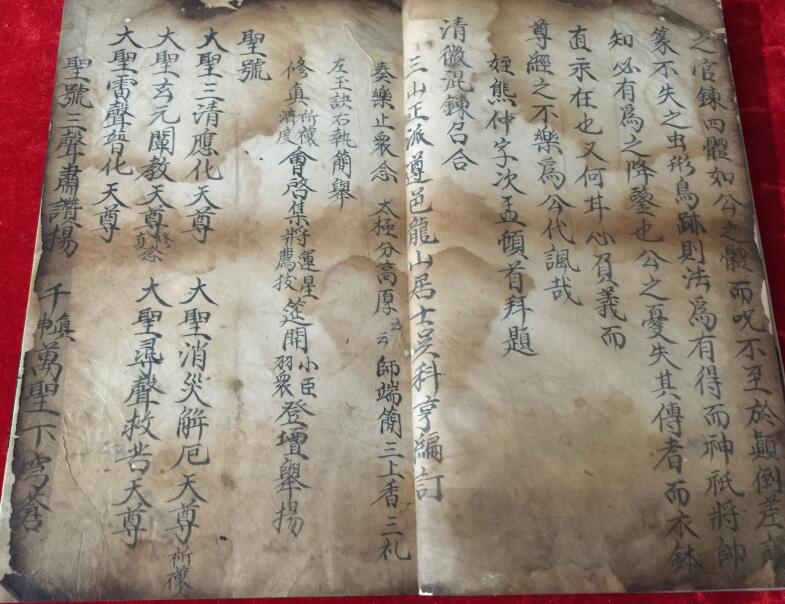 之官錬四體如公之體而呪不至於顛倒差誤
篆不失之虫形鳥跡則法為有得而神祇將帥
知必有為之降鑒也公之憂失其傳者而衣鉢
直示在也又何其心負義而
尊經之不樂為公代諷哉
姪熊仲字次孟頓首拜題
清微混錬召合
三山正派遵邑龍山居士吴科亨編訂
奏樂止衆念 太極分高厚云云 師端簡三上香三礼
左玉訣右執簡舉
修真祈禳濟度會啓集將運星薦拔筵開小臣羽衆登壇舉揚
聖號
大聖三清應化天尊 大聖消災解厄天尊祈禳
大聖玄元闡教天尊修真念 大聖尋聲救苦天尊
大聖雷聲普化天尊
聖號三聲肅讚揚 千真萬聖下穹蒼